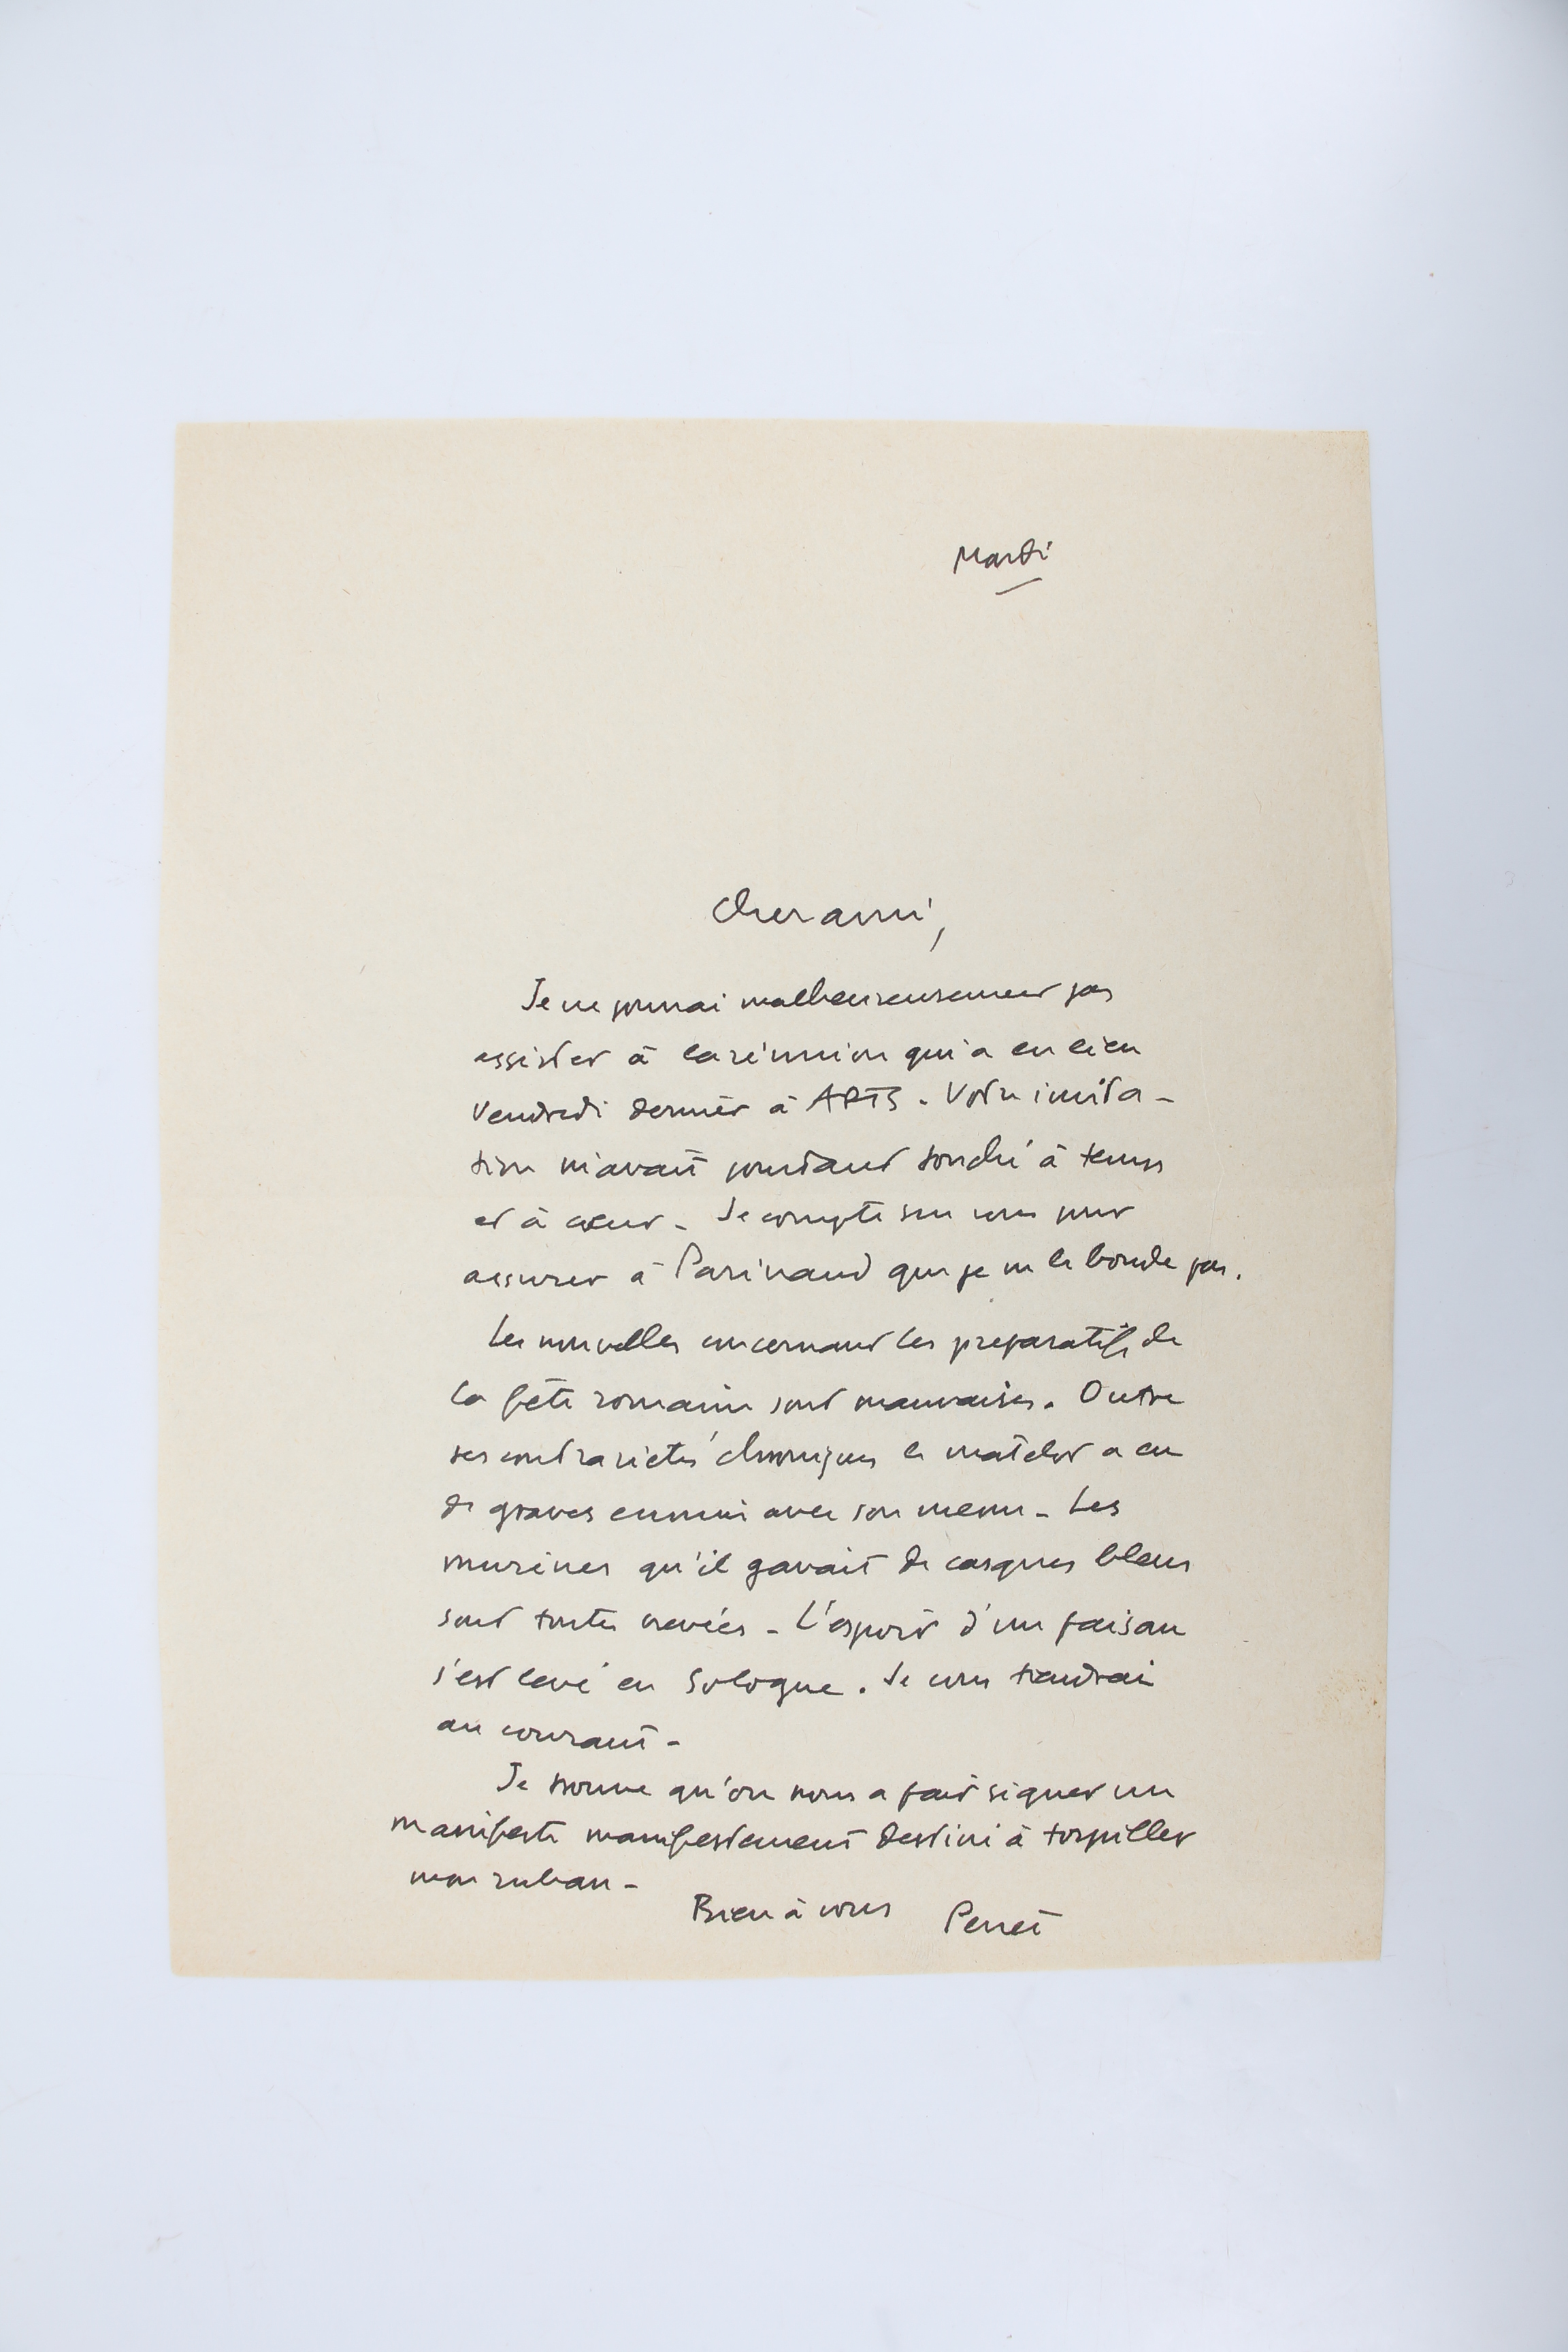 Mardi
Cher ami,
Je ne pourrai malheureusement pas
assister à la réunion qui a eu lieu
Vendredi dernier à ARTS. Votre invita-
tion m'avait pourtant touché à temps
et à cœur. Je compte sur vous pour
assurer à Parinaud que je ne le boude pas.
Les nouvelles concernant les préparatifs de
la fête romaine sont mauvaises. Outre
ses contrariétés chroniques le matelot a eu
de graves ennuis avec son menu. Les
murènes qu'il gavait de casques bleus
sont toutes crevées. L'espoir d'un faisan
s'est levé en Sologne. Je vous tiendrai
au courant.
Je trouve qu'on nous a fait signer un
manifeste manifestement destiné à torpiller
mon ruban.
Bien à vous Perret